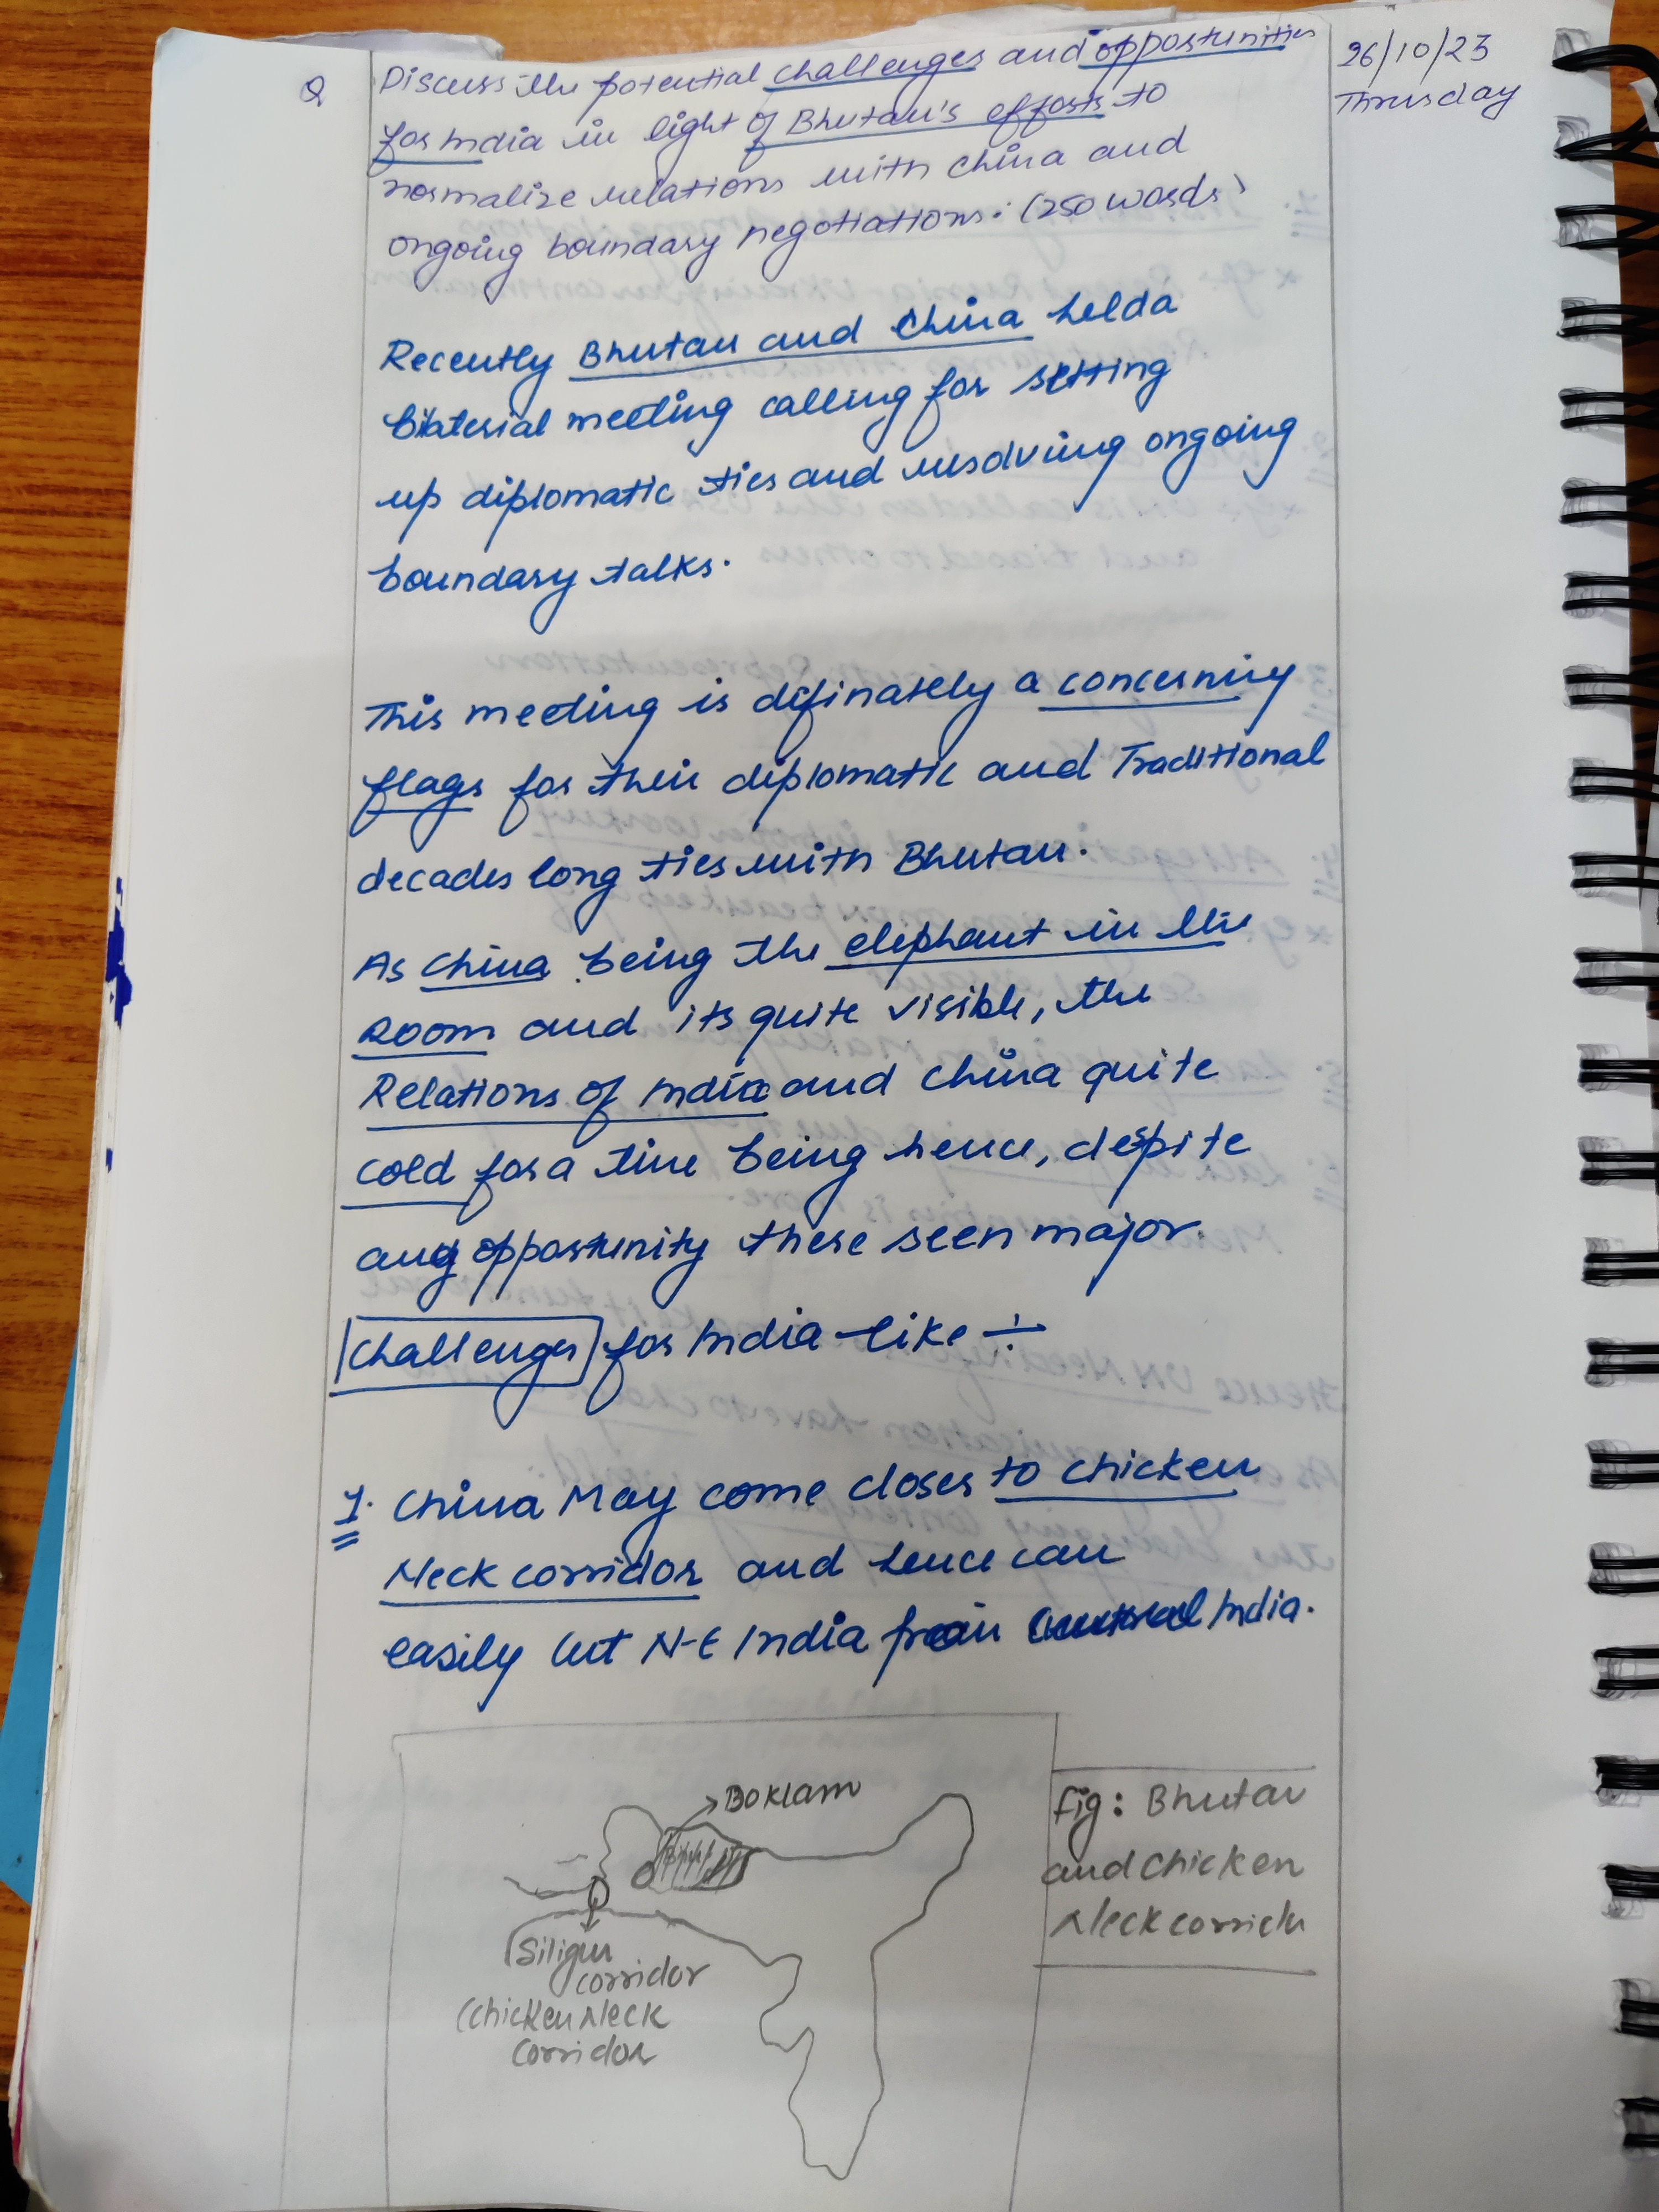 26/10/23
Thrusday
Q Discuss the potential challenges and opportunities
for India in light of Bhutan's efforts to
normalize relations with China and
ongoing boundary negotiations. (250 words)
Recently Bhutan and China held a
bilaterial meeting calling for setting
up diplomatic ties and resolving ongoing
boundary talks.
This meeting is difinately a concerning
flags for their diplomatic and Traditional
decades long ties with Bhutan.
As China being the elephant in the
Room and its quite visible, the
Relations of India and China quite
cold for a time being hence, despite
any opportunity there seen major
Challenges for India like ÷
1. China May come closer to chicken
Neck corridor and hence can
easily cut N-E India from central India.
Doklam
Siligur
corridor
(chicken Neck
Corridor
fig: Bhutan
and chicken
Neck corrido